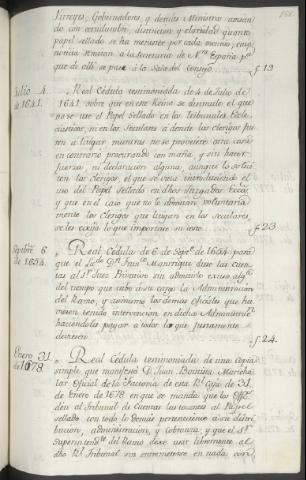 Virreyes, Gobernadores, y demás Ministros avisan
do con certidumbre, distincion, y claridad quanto
papel sellado se ha menester por cada oficina, cuya
noticia remitan a la Secretaria de N.ª España p.ª
que de ella se pase à la Sala del Consejo. f. 19
Julio 4. de 1641.
Real Cédula testimoniada de 4 de Julio de
1641. sobre que en este Reino se disimule el que
no se use el Papel Sellado en los Tribunales Ecle-
siasticos, ni en los Seculares à donde los Clerigos fue
ren à litigar mientras no se proveiere otra cosa
en contrario procurando con maña, y sin hacer
fuerza, ni declaracion alguna, aunque lo soliciten
los Clerigos, el que se vaya introduciendo el
uso del Papel Sellado en dhos Juzgados Eccos
y que en el caso que no lo admitan voluntaria
mente los Clerigos que litigan en los Seculares,
se les escuse lo que importare su costo f. 23.
Septbre 6 de 1654.
Real Cedula de 6 de Sept.e de 1654. para
que el Lic.do D.n Juan Manrrique diese las cuen-
tas al S.r Juez Privativo sin admitirle excusa alg.ª
del tiempo que tubo à su cargo la Administracion
del Ramo, y asimismo los demas oficiales que hu
viesen tenido intervencion en dicha Administac.n
haciendoles pagar à todos lo que justamente
devieren f. 24.
Enero 31. de 1678.
Real Cédula testimoniada de una Copia
simple que manifestó D. Juan Bautista
tar Oficial de la Factoria de esta R.l Caja de 31.
de Enero de 1678. en que se manda que los Offic.s
den al Tribunal de Cuentas las tocantes al Papel
sellado con todo lo demas perteneciente à su distri
bucion, administracion, y cobranza; y que el S.r
Superintend.te del Ramo dexe usar libremente al
dho R.l Tribunal sin entrometerse en nada, con